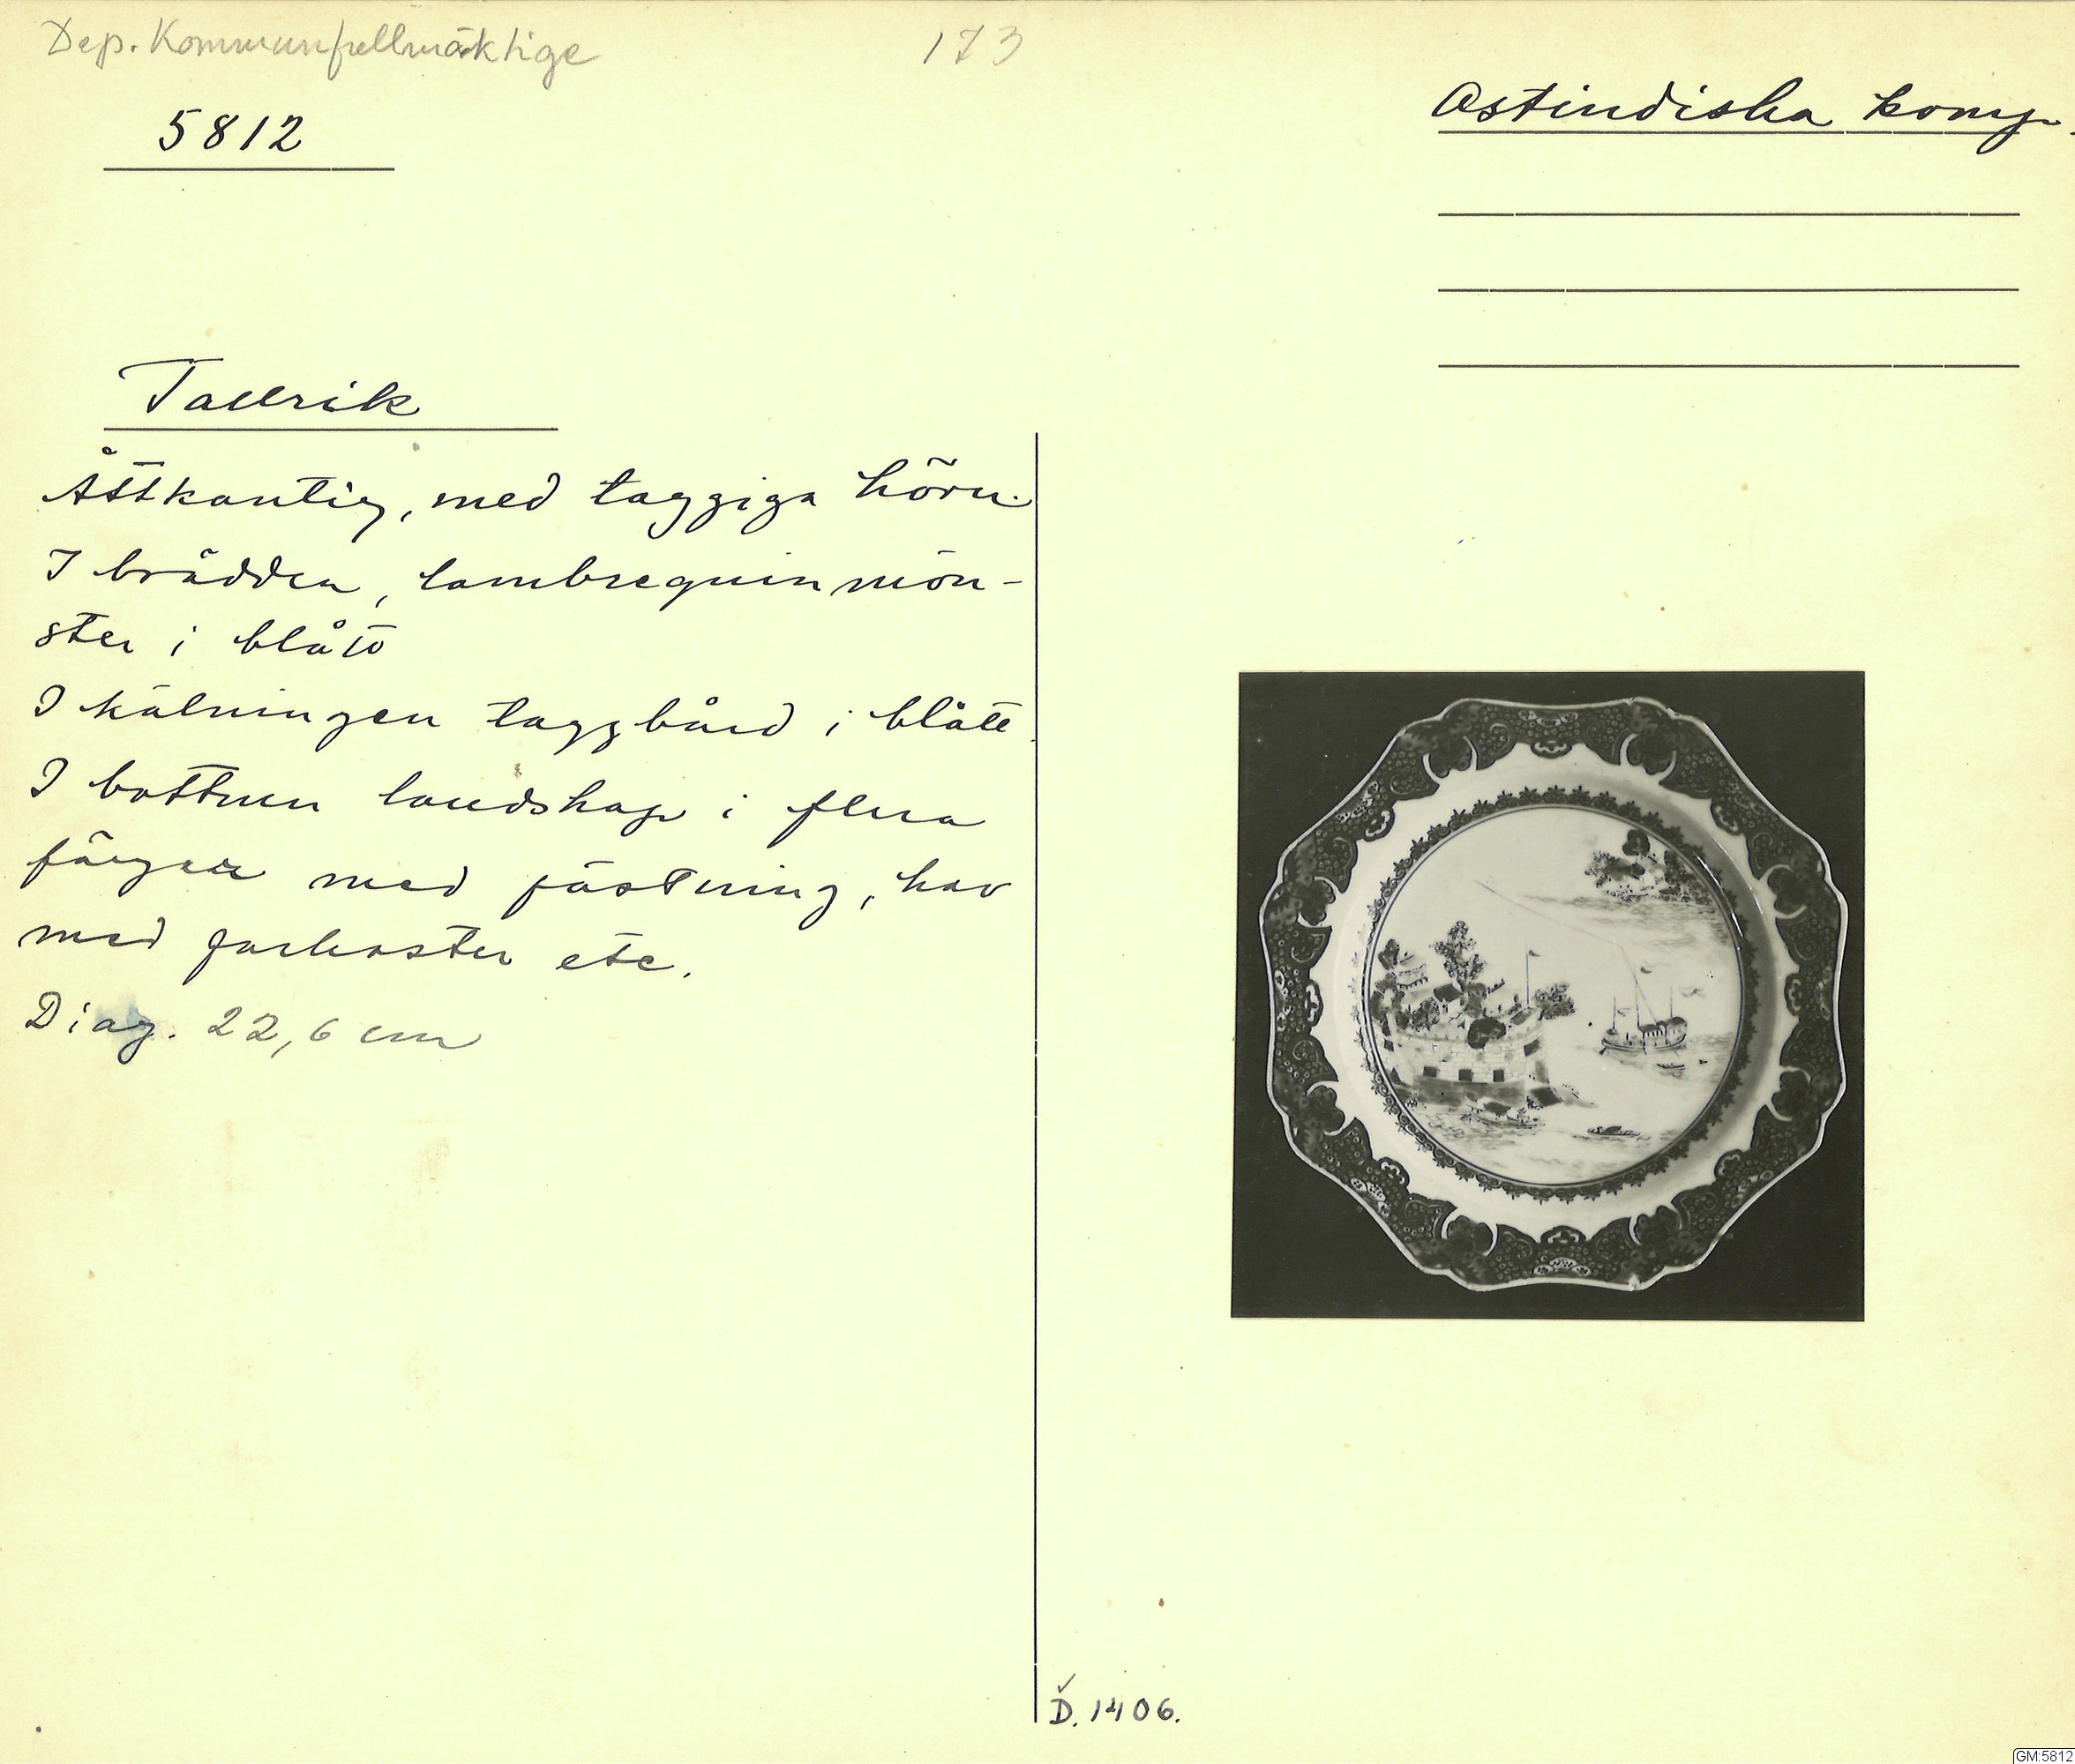 Dep. Kommunfullmäktige
173
5812
Ostindiska komp.
Tallrik
Åttkantig, med taggiga hörn.
I brädden, lambrequinmön-
ster i blått
I kälningen taggbård i blått
I bottnen landskap i flera
färger med fästning, hav
med farkoster etc.
Diag. 22,6 cm
D. 1406.
GM:5812